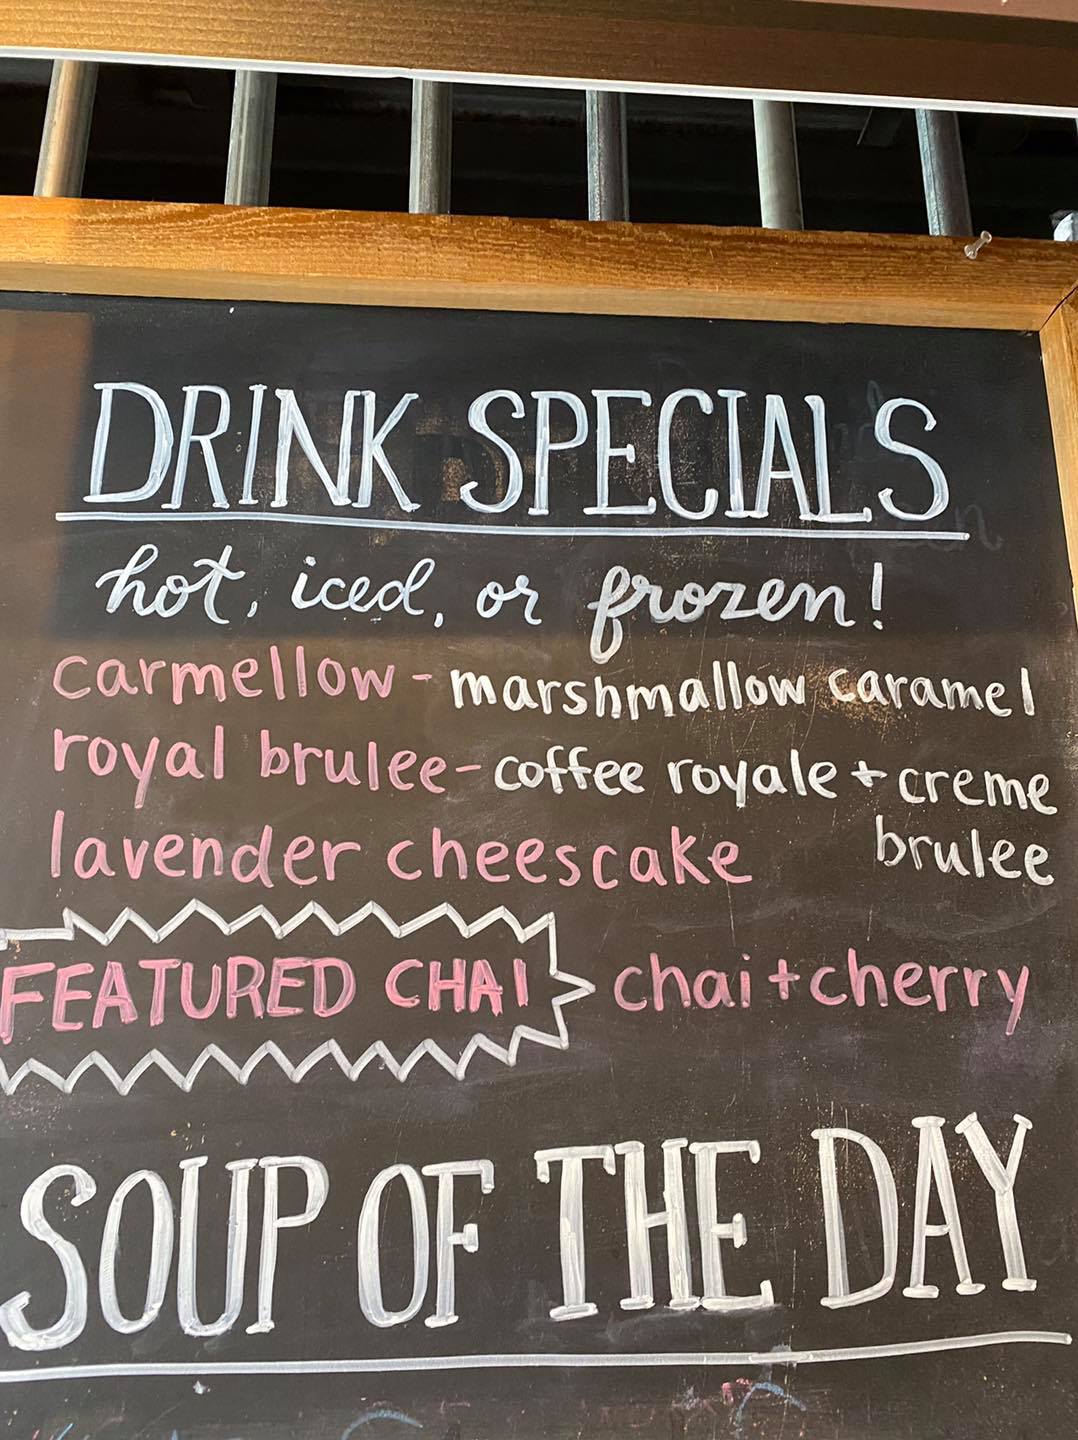 DRINK SPECIALS
hot, iced, or frozen!
carmellow - marshmallow caramel
royal brulee - coffee royale + creme
brulee
lavender cheesecake
FEATURED CHAI chai + cherry
SOUP OF THE DAY